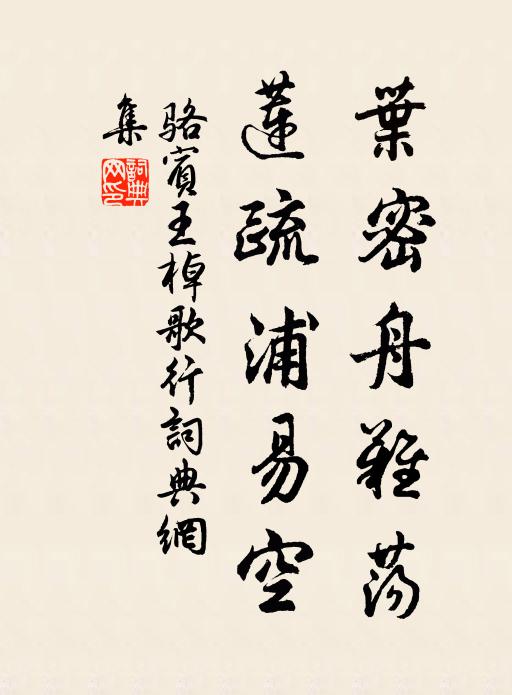 葉密舟難蕩
蓮疏浦易空
駱賓王棹歌行詞典網
集
詞典網印